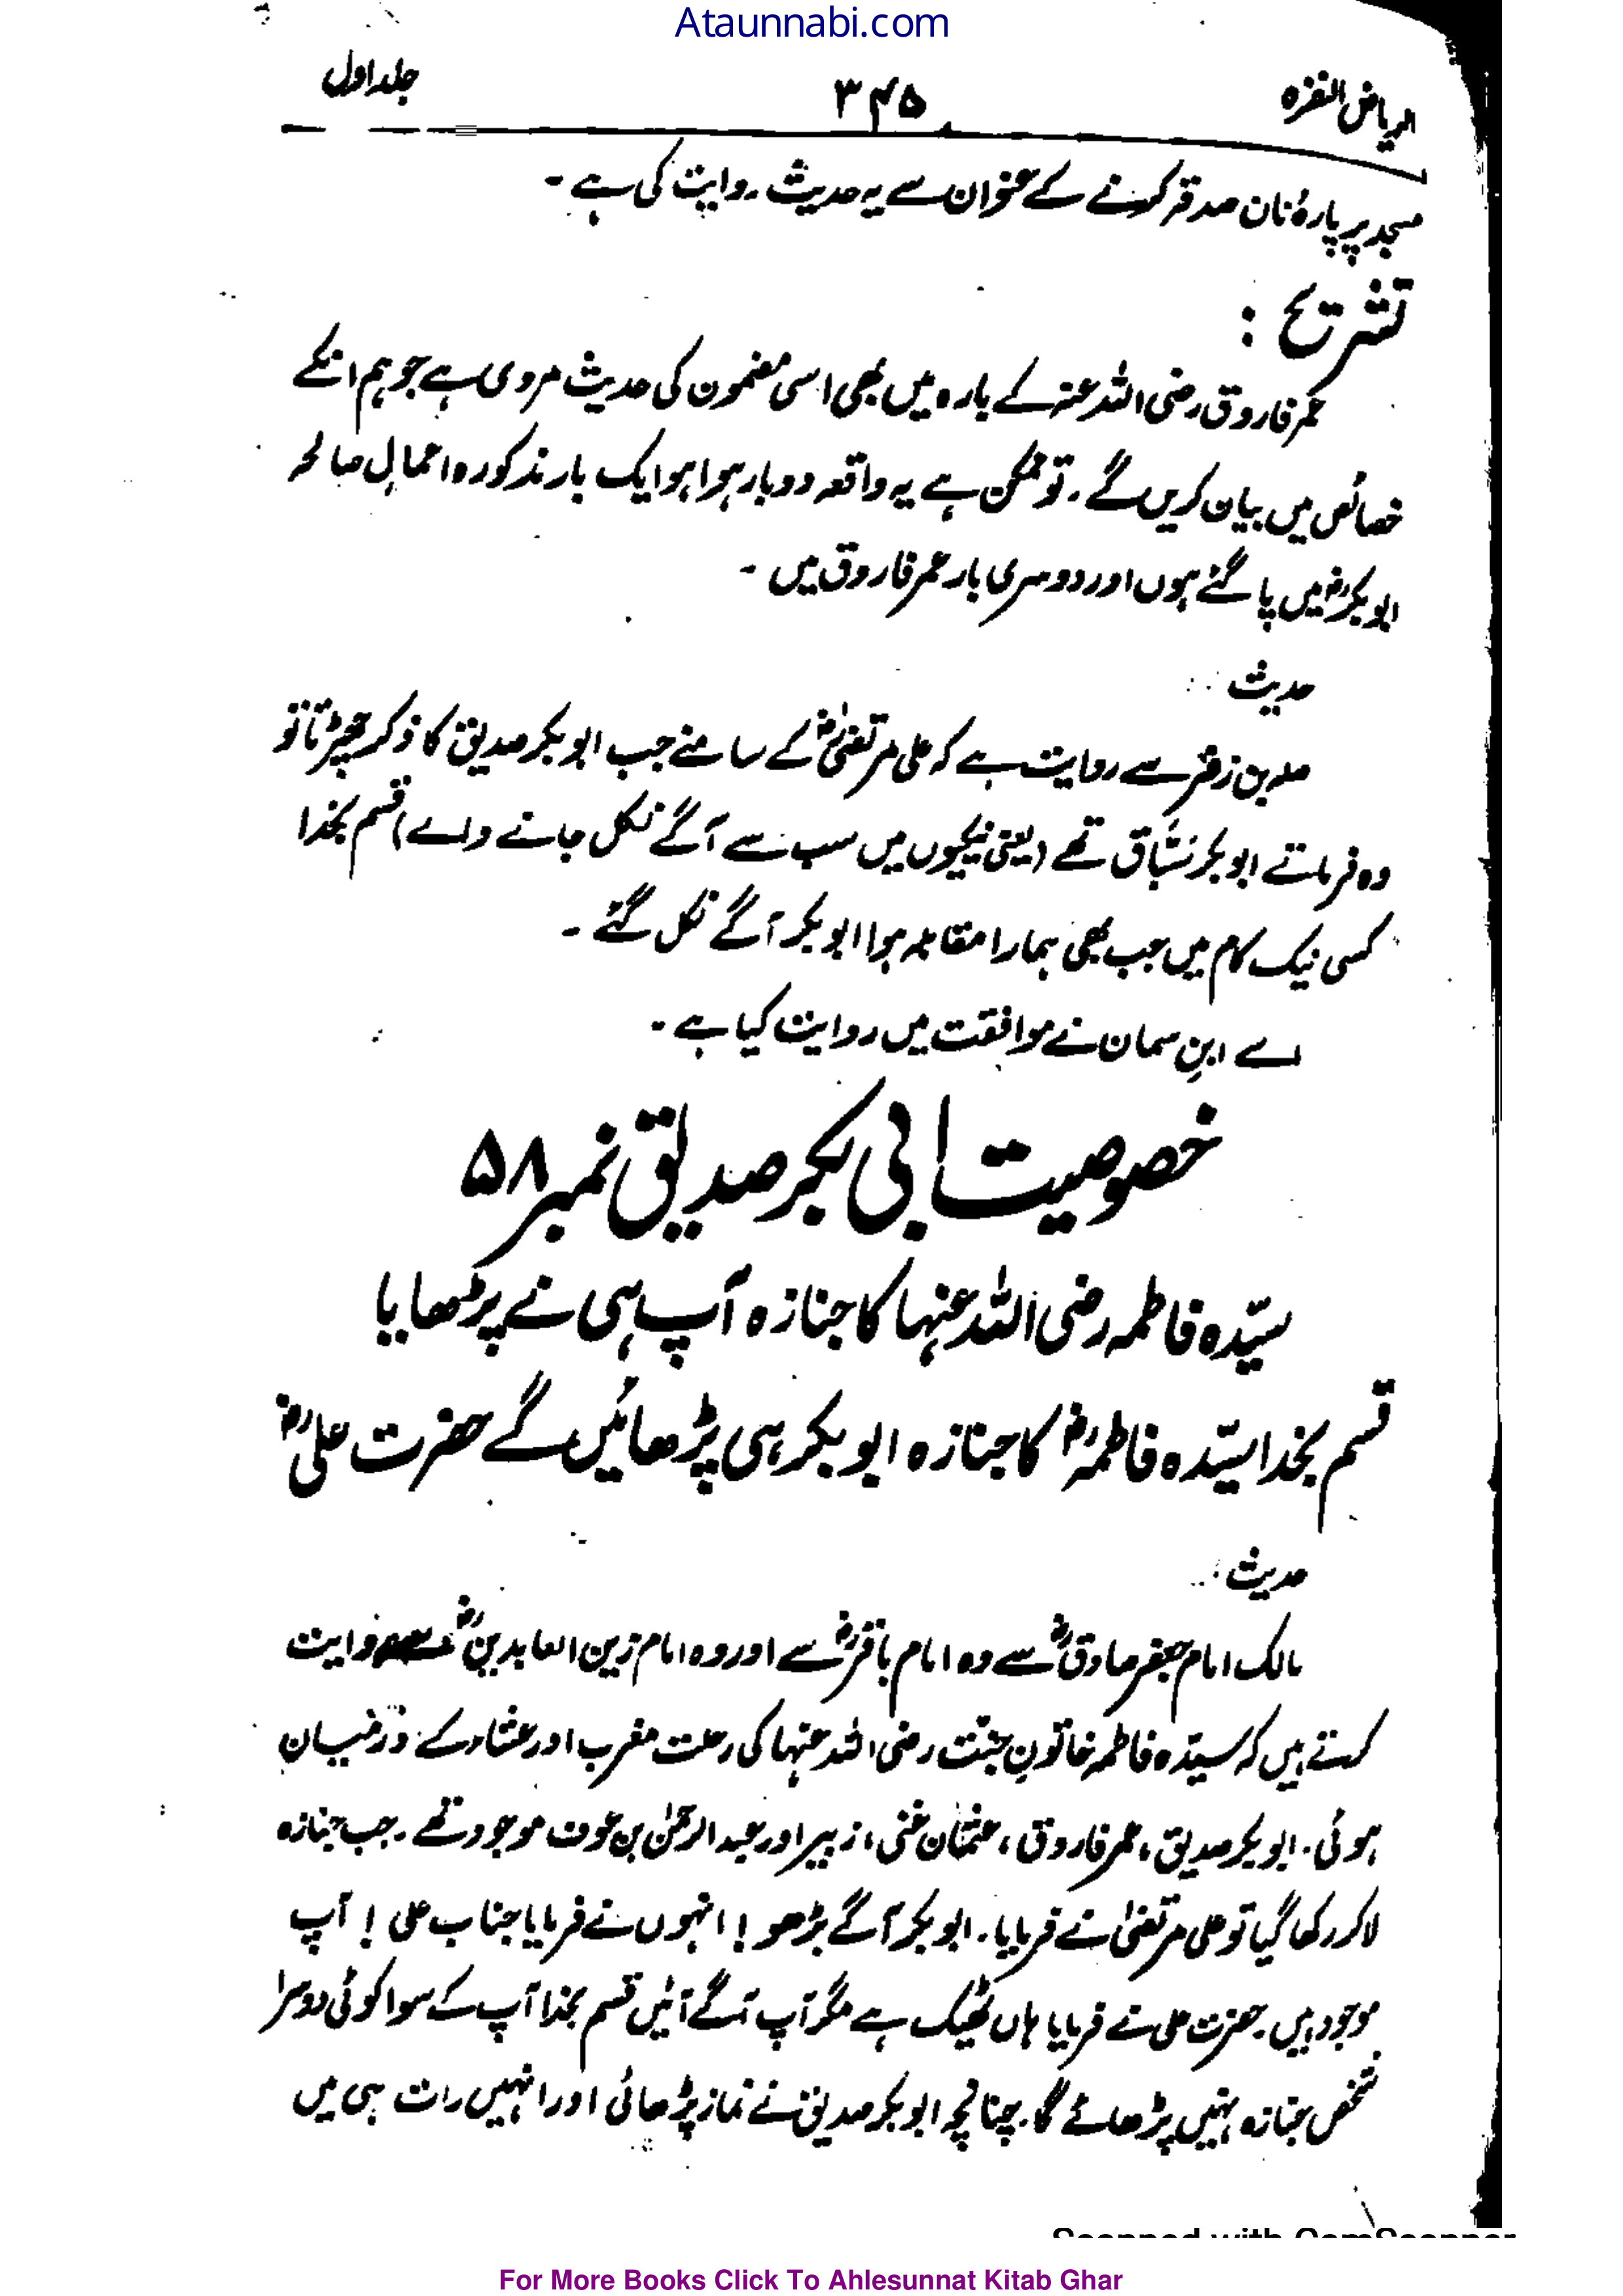 Ataunnabi.com
الریاض النضرہ ۳۴۵ جلد اول
مسجد پر پارۂ نان صدقہ کرنے کے عنوان سے یہ حدیث روایت کی ہے ۔
تشریح :
عمر فاروق رضی اللہ عنہ کے بارہ میں بھی اسی مضمون کی حدیث مروی ہے جو ہم انکے
خصائص میں بیان کریں گے ۔ تو ممکن ہے یہ واقعہ دو بار ہوا ہو ایک بار مذکورہ اعمالِ صالحہ
ابو بکرؓ میں پائے گئے ہوں اور دوسری بار عمر فاروق میں ۔
حدیث
صلہ بن زفر سے روایت ہے کہ علی مرتضیٰؓ کے سامنے جب ابو بکر صدیق کا ذکر چھڑتا تو
وہ فرماتے ابو بکر سَبَّاق تھے (یعنی نیکیوں میں سب سے آگے نکل جانے والے) قسم بخدا
کسی نیک کام میں جب بھی ہمارا مقابلہ ہوا ابو بکر آگے نکل گئے ۔
اسے ابنِ سمان نے موافقت میں روایت کیا ہے ۔
خصوصیت ابی بکر صدیق نمبر ۵۸
سیّدہ فاطمہ رضی اللہ عنہا کا جنازہ آپ ہی نے پڑھایا
قسم بخدا سیّدہ فاطمہؓ کا جنازہ ابو بکر ہی پڑھائیں گے حضرت علیؓ
حدیث :
مالک امام جعفر صادقؓ سے وہ امام باقرؓ سے اور وہ امام زین العابدینؓ سے روایت
کرتے ہیں کہ سیّدہ فاطمہ خاتونِ جنّت رضی اللہ عنہا کی رحلت مغرب اور عشاء کے درمیان
ہوئی ۔ ابو بکر صدیق ، عمر فاروق ، عثمان غنی ، زبیر اور عبد الرحمٰن بن عوف موجود تھے ۔ جب جنازہ
لا کر رکھا گیا تو علی مرتضیٰ نے فرمایا ۔ ابو بکر آگے بڑھو ! انہوں نے فرمایا جناب علی ! آپ
موجود ہیں ۔ حضرت علی نے فرمایا ہاں ٹھیک ہے مگر آپ آگے آئیں قسم بخدا آپ کے سوا کوئی دوسرا
شخص جنازہ نہیں پڑھائے گا ۔ چنانچہ ابو بکر صدیق نے نماز پڑھائی اور انہیں رات ہی میں
Scanned with CamScanner
For More Books Click To Ahlesunnat Kitab Ghar